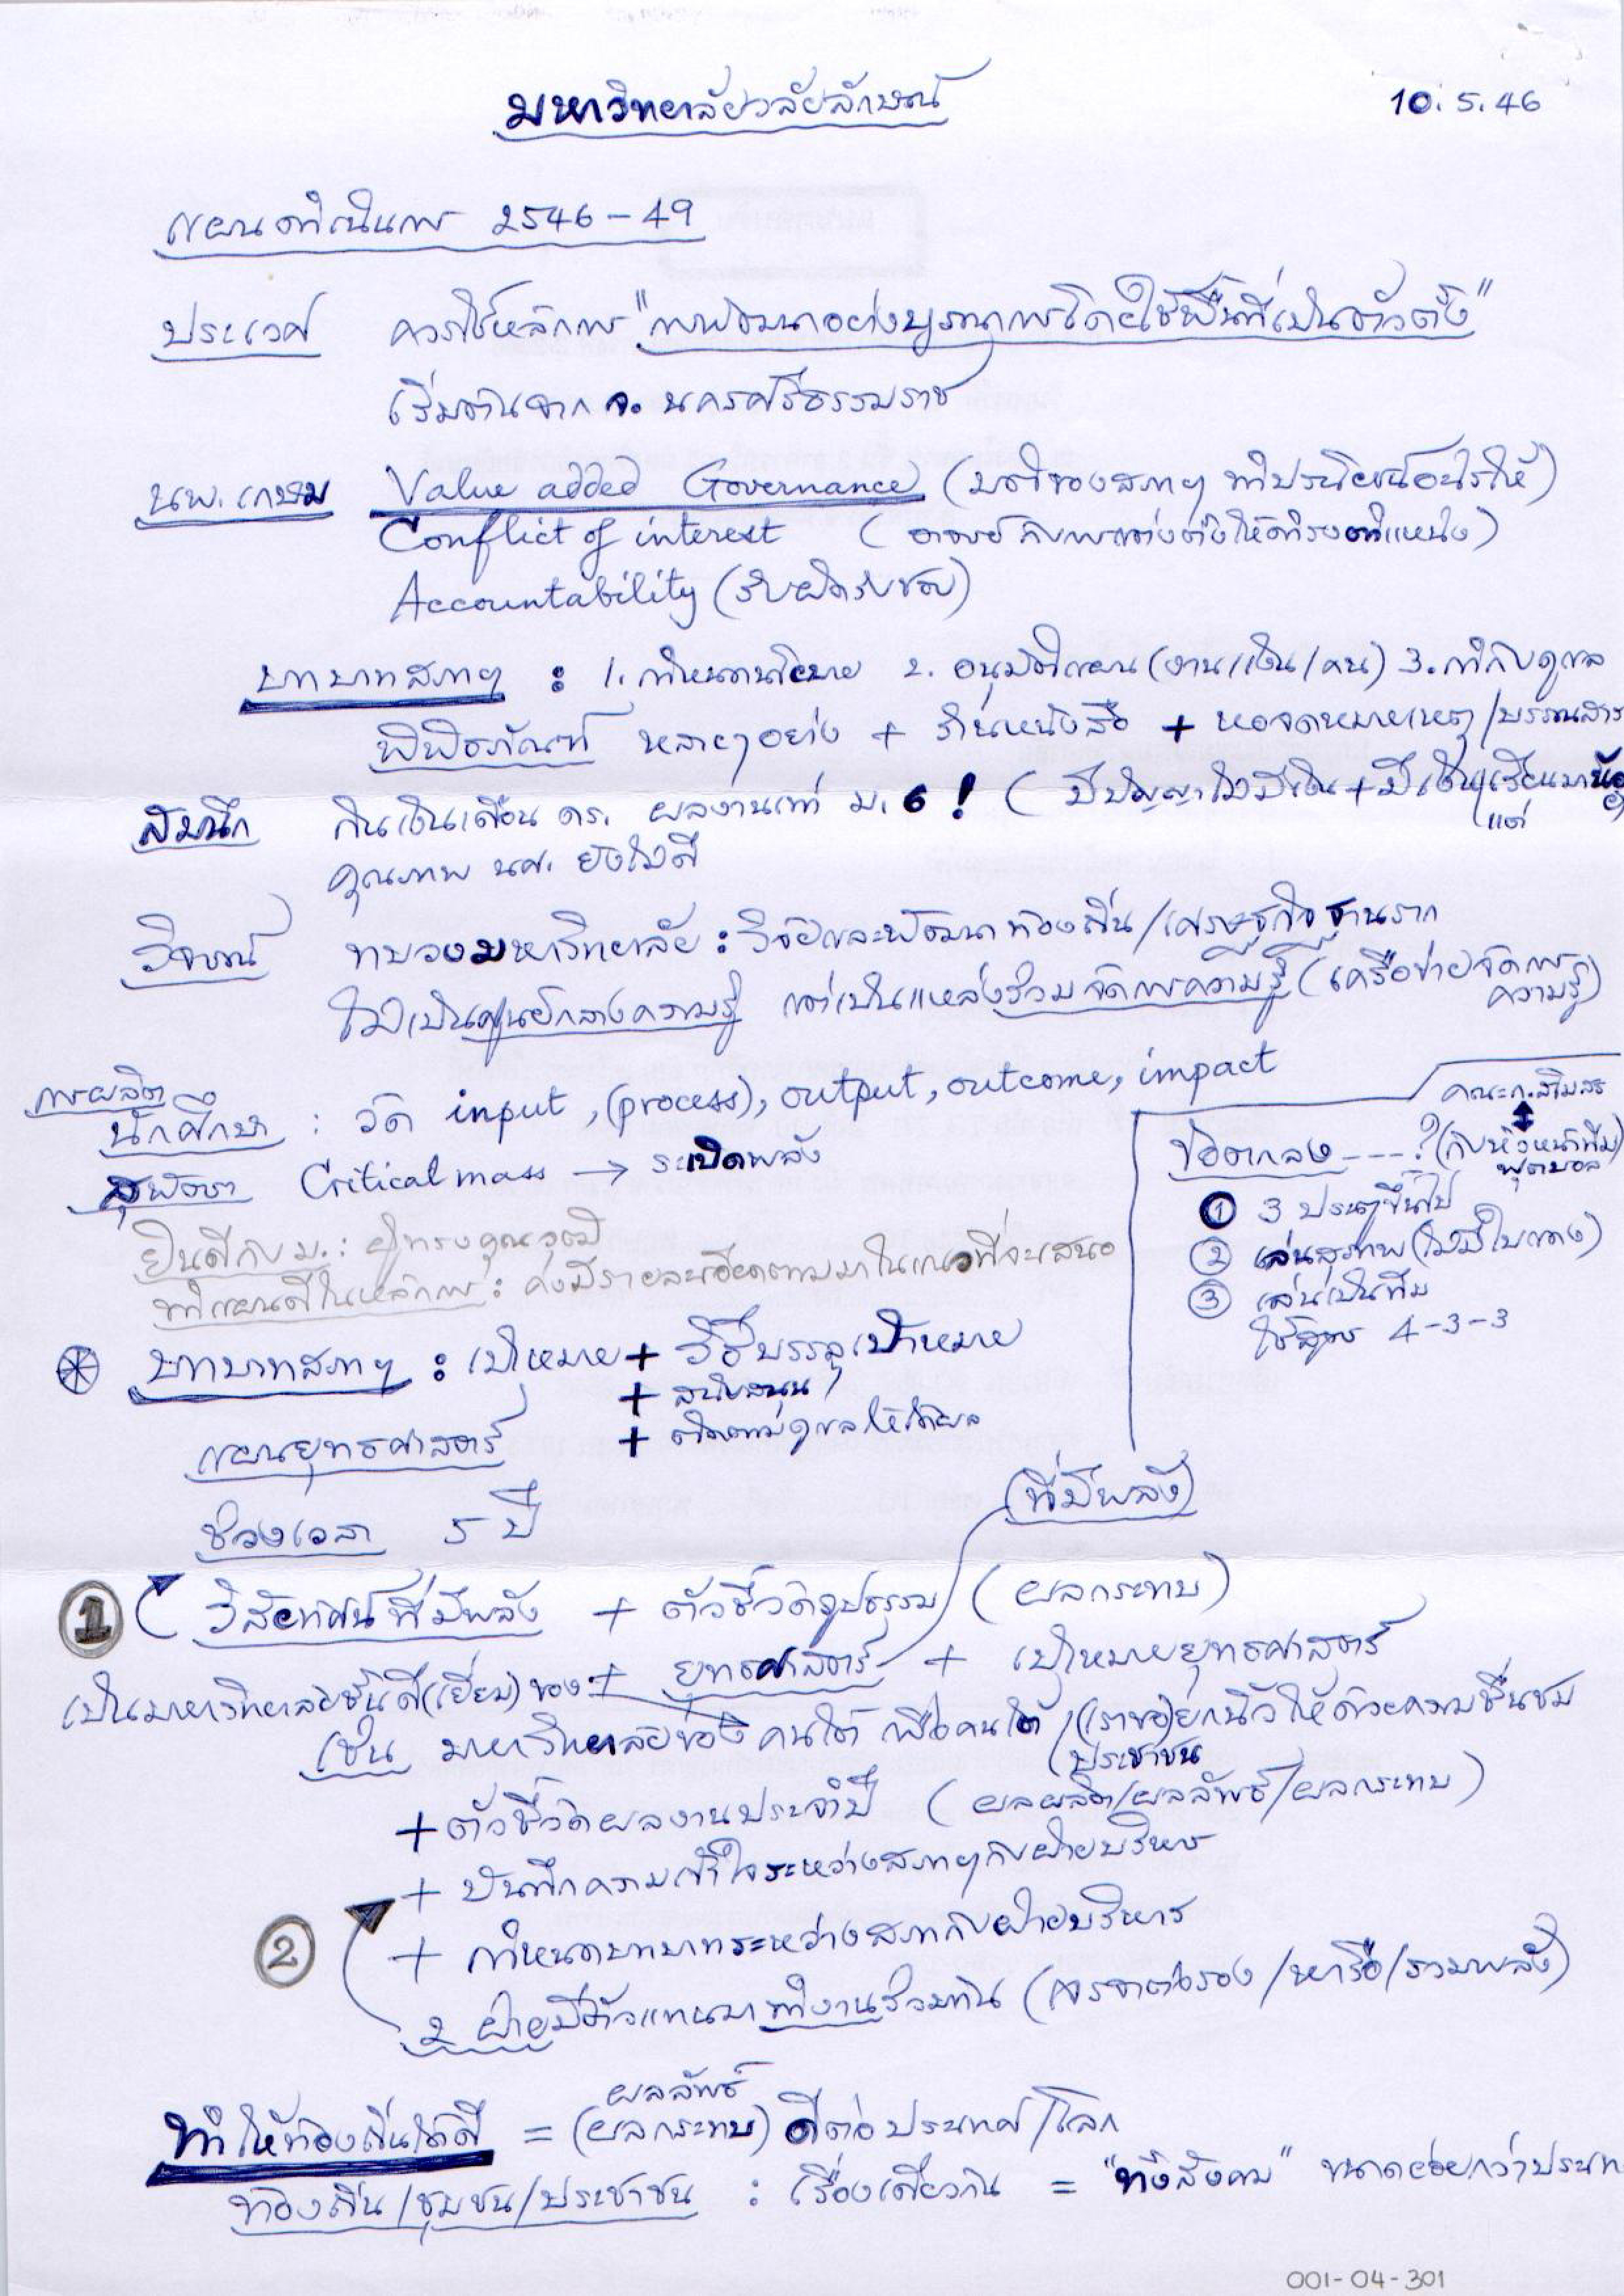 มหาวิทยาลัยวลัยลักษณ์
10.5.46
แผนดำเนินการ 2546-49
ประเวศ ควรใช้หลักการ "การพัฒนาอย่างบูรณาการโดยใช้พื้นที่เป็นตัวตั้ง"
เริ่มต้นจาก จ. นครศรีธรรมราช
นพ.เกษม Value added Governance (มติของสภาฯ ทำประโยชน์อะไรให้)
Conflict of interest (อาจารย์กับการแต่งตั้งให้ดำรงตำแหน่ง)
Accountability (รับผิดรับชอบ)
บทบาทสภาฯ : 1. กำหนดนโยบาย 2. อนุมัติแผน (งาน/เงิน/คน) 3. กำกับดูแล
พิพิธภัณฑ์ หลายๆอย่าง + ร้านหนังสือ + หอจดหมายเหตุ/บรรณสาร
สมนึก กินเงินเดือน ดร. ผลงานเท่า ม.6! (มีปัญญาไม่มีเงิน + มีเงินแต่เรียนมาน้อย)
คุณภาพ นศ. ยังไม่ดี
วิจารณ์ ทบวงมหาวิทยาลัย : วิจัยและพัฒนาท้องถิ่น/เศรษฐกิจฐานราก
ไม่เป็นศูนย์กลางความรู้ แต่เป็นแหล่งร่วมจัดการความรู้ (เครือข่ายจัดการความรู้)
การผลิต
นักศึกษา : วัด input, (process), output, outcome, impact
สุพัทธา Critical mass → ระเบิดพลัง
ยินดีกับ ม. : ผู้ทรงคุณวุฒิ
ทำแผนดีในหลักการ : คงมีรายละเอียดตามมาในแนวที่จะเสนอ
คณะก.สโมสร
ข้อตกลง ---? (กับหัวหน้าทีมฟุตบอล)
① 3 ประตูขึ้นไป
② เล่นสุภาพ (ไม่มีใบแดง)
③ เล่นเป็นทีม
ใช้สูตร 4-3-3
บทบาทสภาฯ : เป้าหมาย + วิธีบรรลุเป้าหมาย
+ สนับสนุน
+ ติดตามดูแลให้ได้ผล
แผนยุทธศาสตร์
ช่วงเวลา 5 ปี
(ที่มีพลัง)
① วิสัยทัศน์ที่มีพลัง + ตัวชี้วัดรูปธรรม (ผลกระทบ)
เป็นมหาวิทยาลัยชั้นดี(เยี่ยม) ของ + ยุทธศาสตร์ + เป้าหมายยุทธศาสตร์
เช่น มหาวิทยาลัยของคนใต้ เพื่อคนใต้ /(เราขอ)ยกนิ้วให้ด้วยความชื่นชม
(ประชาชน
+ ตัวชี้วัดผลงานประจำปี (ผลผลิต/ผลลัพธ์/ผลกระทบ)
+ บันทึกความเข้าใจระหว่างสภาฯกับฝ่ายบริหาร
② + กำหนดบทบาทระหว่างสภากับฝ่ายบริหาร
2 ฝ่ายมีตัวแทนมาทำงานร่วมกัน (เจรจาต่อรอง/หารือ/รวมพลัง)
ผลลัพธ์
ทำให้ท้องถิ่นได้ดี = (ผลกระทบ) ดีต่อประเทศ/โลก
ท้องถิ่น/ชุมชน/ประชาชน : เรื่องเดียวกัน = "ทั้งสังคม" ขนาดย่อยกว่าประเท
001-04-301